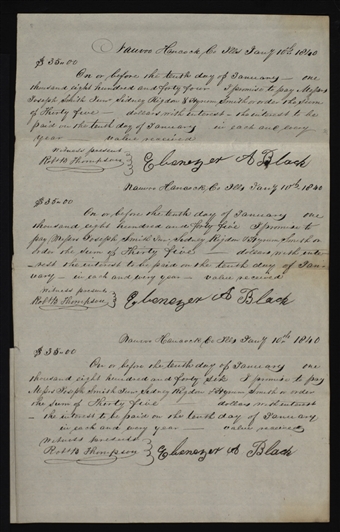 Nauvoo Hancock Co Ills Jany 10th 1840
$35.00
On or before the tenth day of January — one
thousand eight hundred and forty four I promise to pay Messrs
Joseph Smith Junr Sidney Rigdon & Hyrum Smith or order the Sum
of Thirty five — dollars with interest — the interest to be
paid on the tenth day of January in each and every
year value received
Witness present
Robt B. Thompson } Ebenezer A Black
Nauvoo Hancock, Co Ills Jany 10th, 1840
$35.00
On or before the tenth day of January one
thousand eight hundred and forty five I promise to
pay Messrs Joseph Smith Jun, Sidney Rigdon & Hyrum Smith or
order the Sum of Thirty five — dollars with inte-
rest the interest to be paid on the tenth day of Jan-
uary — in each and every year — value received
Witness present
Robt B Thompson } Ebenezer A Black
Nauvoo Hancock, Co Ills Jany 10th 1840
$35.00
On or before the tenth day of January — one
thousand eight hundred and forty six I promise to pay
Messrs Joseph Smith Junr, Sidney Rigdon & Hyrum Smith or order
the Sum of Thirty five — dollars with interest
— the interest to be paid on the tenth day of January
in each and every year — value received
Witness present
Robt B Thompson } Ebenezer A. Black